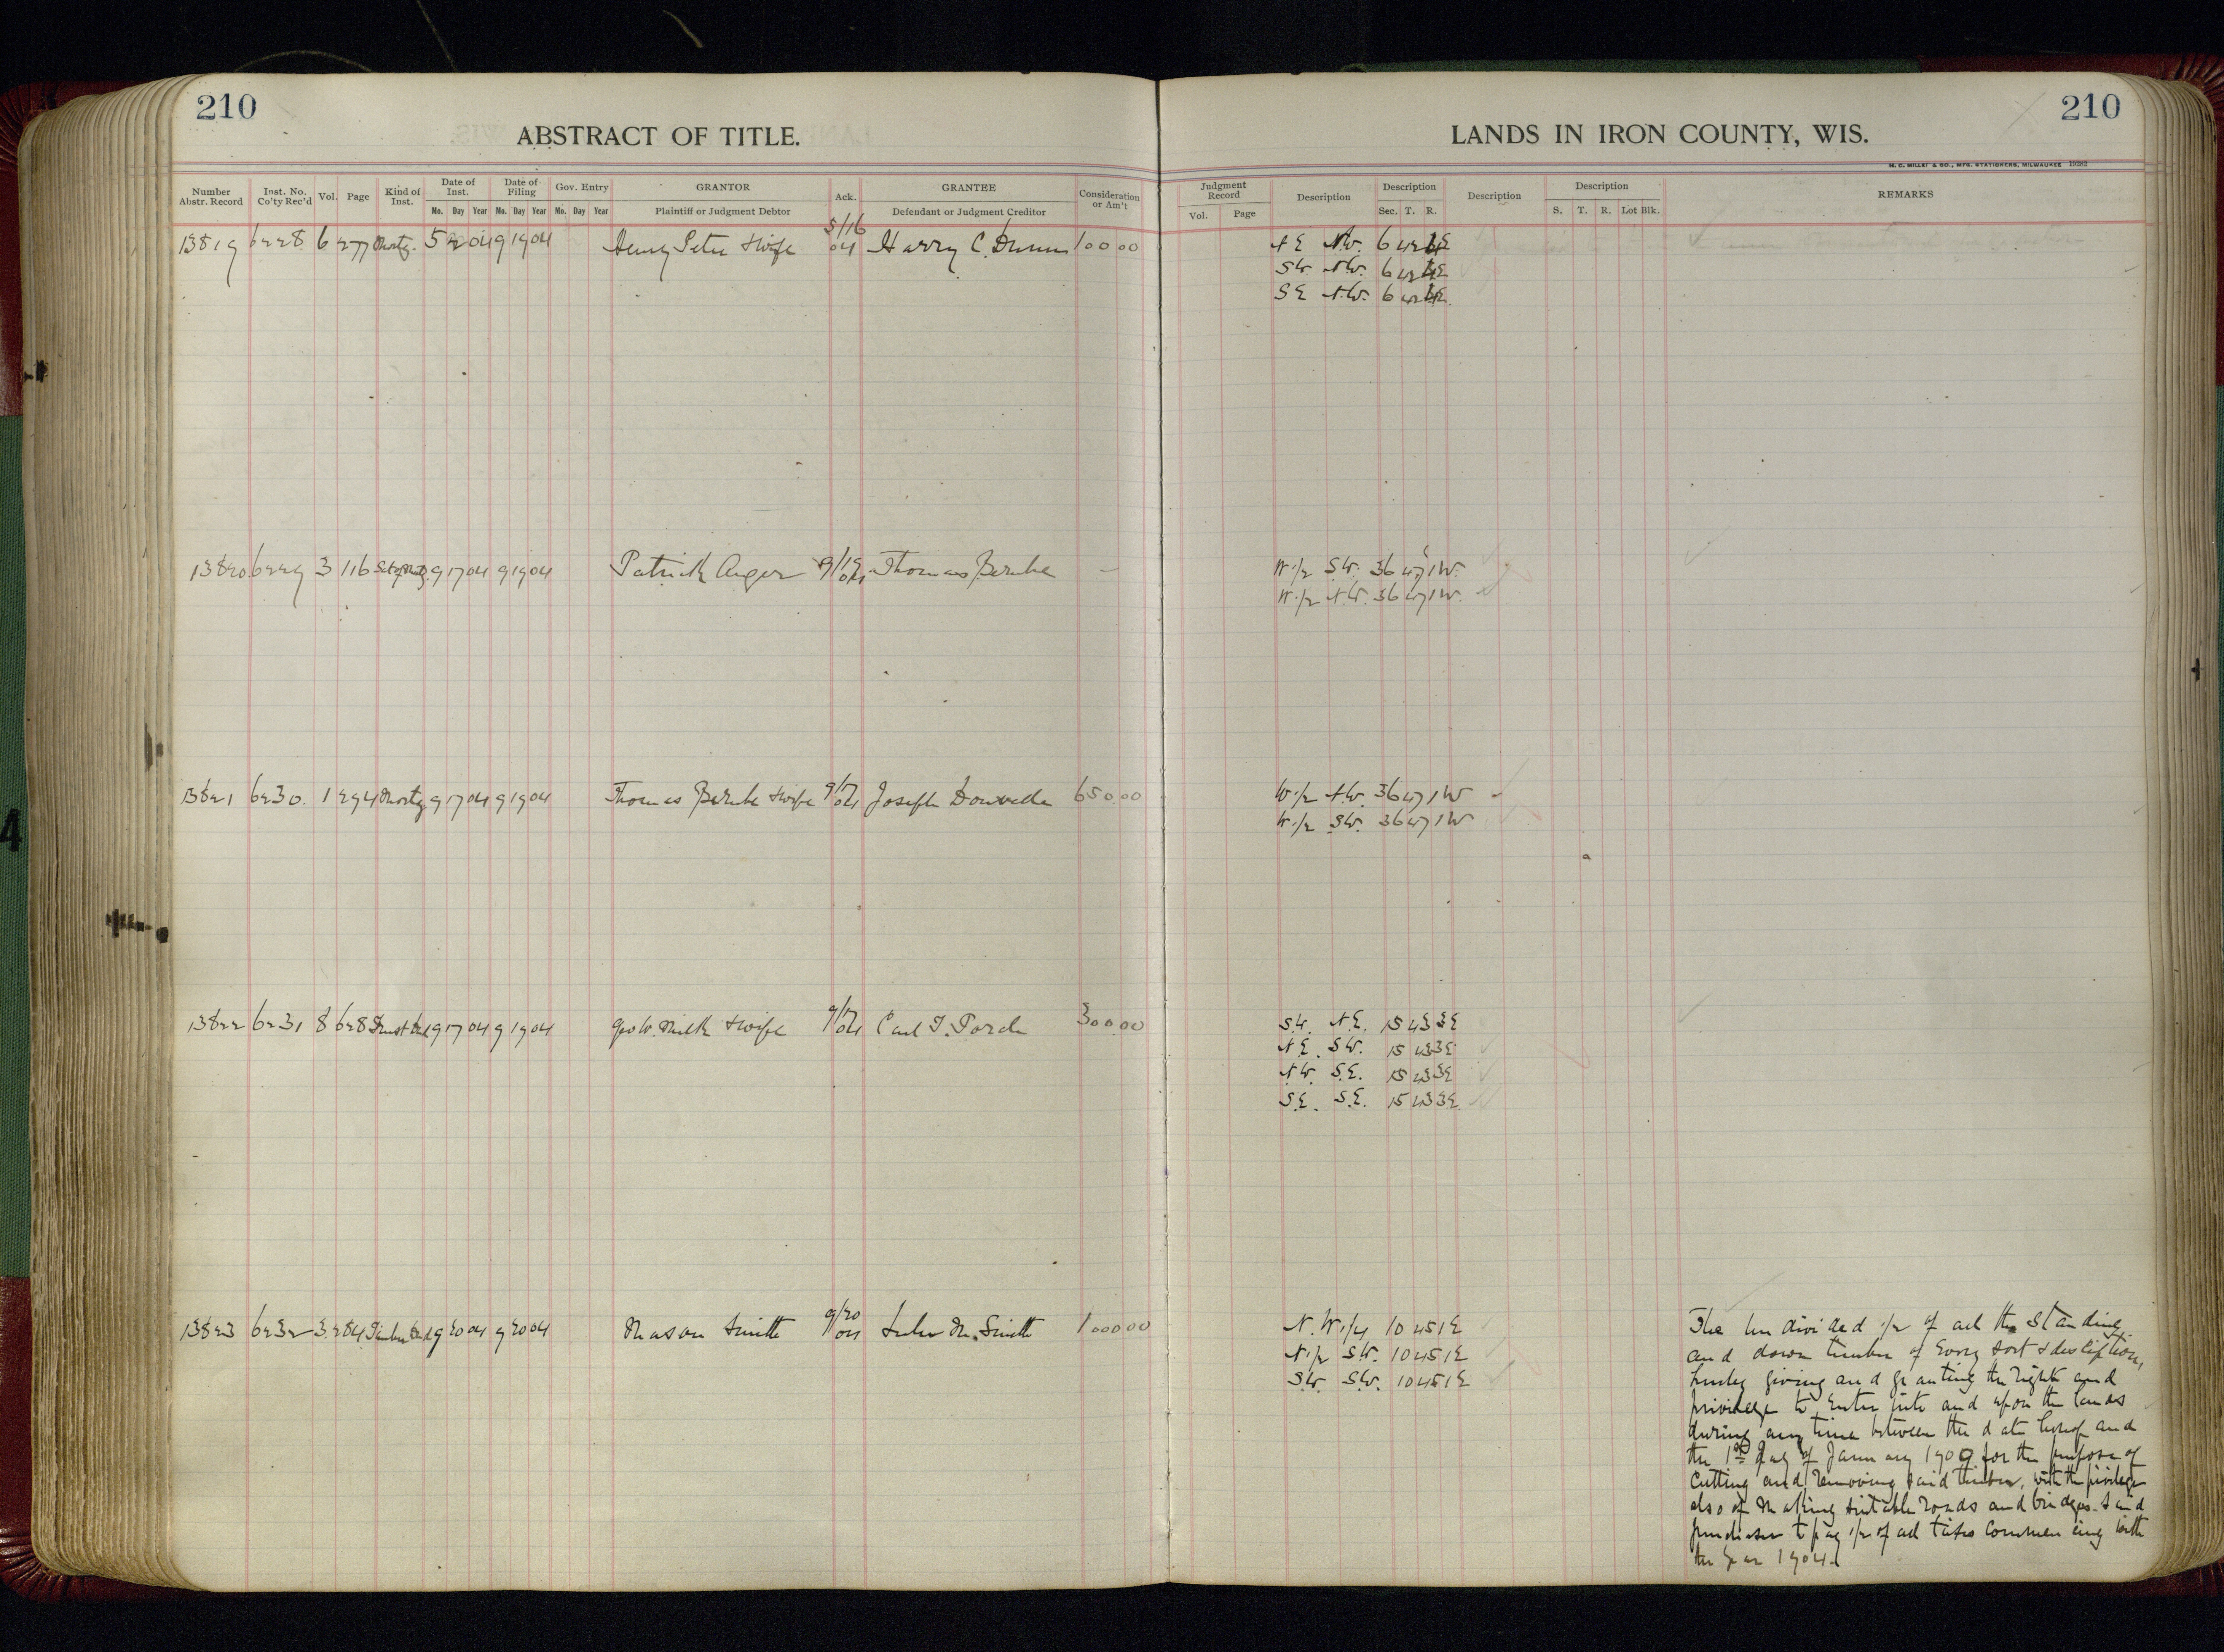 210
ABSTRACT OF TITLE.
Number Abstr. Record Inst. No. Co'ty Rec'd Vol. Page Kind of Inst. Date of Inst. Date of Filing Gov. Entry GRANTOR Ack. GRANTEE Consideration or Am't
Mo. Day Year Mo. Day Year Mo. Day Year Plaintiff or Judgment Debtor Defendant or Judgment Creditor
13819 6228 6 277 Mortg. 5 2 04 9 19 04 Henry Peter & wife 5/16 04 Harry C. 100 00
13820 6229 3 116 9 17 04 9 19 04 Patrick 9/19 04 Thomas Berube —
13821 6230 1 294 Mortg 9 17 04 9 19 04 Thomas Berube & wife 9/17 04 Joseph 650 00
13822 6231 8 628 9 17 04 9 19 04 Geo W. & wife 9/17 04 Carl F. 300 00
13823 6232 3 284 Timber Deed 9 20 04 9 20 04 Mason Smith 9/20 04 M. Smith 1000 00
210
LANDS IN IRON COUNTY, WIS.
H. C. MILLER & CO., MFG. STATIONERS, MILWAUKEE
Judgment Record Description Description Description Description REMARKS
Vol. Page Sec. T. R. S. T. R. Lot Blk.
NE NW. 6 42 E
SW. NW. 6 42 E
SE NW. 6 42 E
W 1/2 SW. 36 47 1W.
W 1/2 N.W. 36 47 1W.
W 1/2 NW. 36 47 1W
W 1/2 SW. 36 47 1W
SW. N.E. 15 43 3E
N.E. SW. 15 43 3E
NW. S.E. 15 43 3E
S.E. S.E. 15 43 3E
N.W 1/4 10 45 1E
N 1/2 SW. 10 45 1E
SW. SW. 10 45 1E
The undivided 1/2 of all the standing
and down timber of Every sort & description,
hereby giving and granting the right and
privilege to Enter into and upon the lands
during any time between the date hereof and
the 1st day of January 1909 for the purpose of
Cutting and removing said timber, with the privilege
also of Making suitable roads and bridges. Said
purchaser to pay 1/2 of all taxes commencing with
the Year 1904.